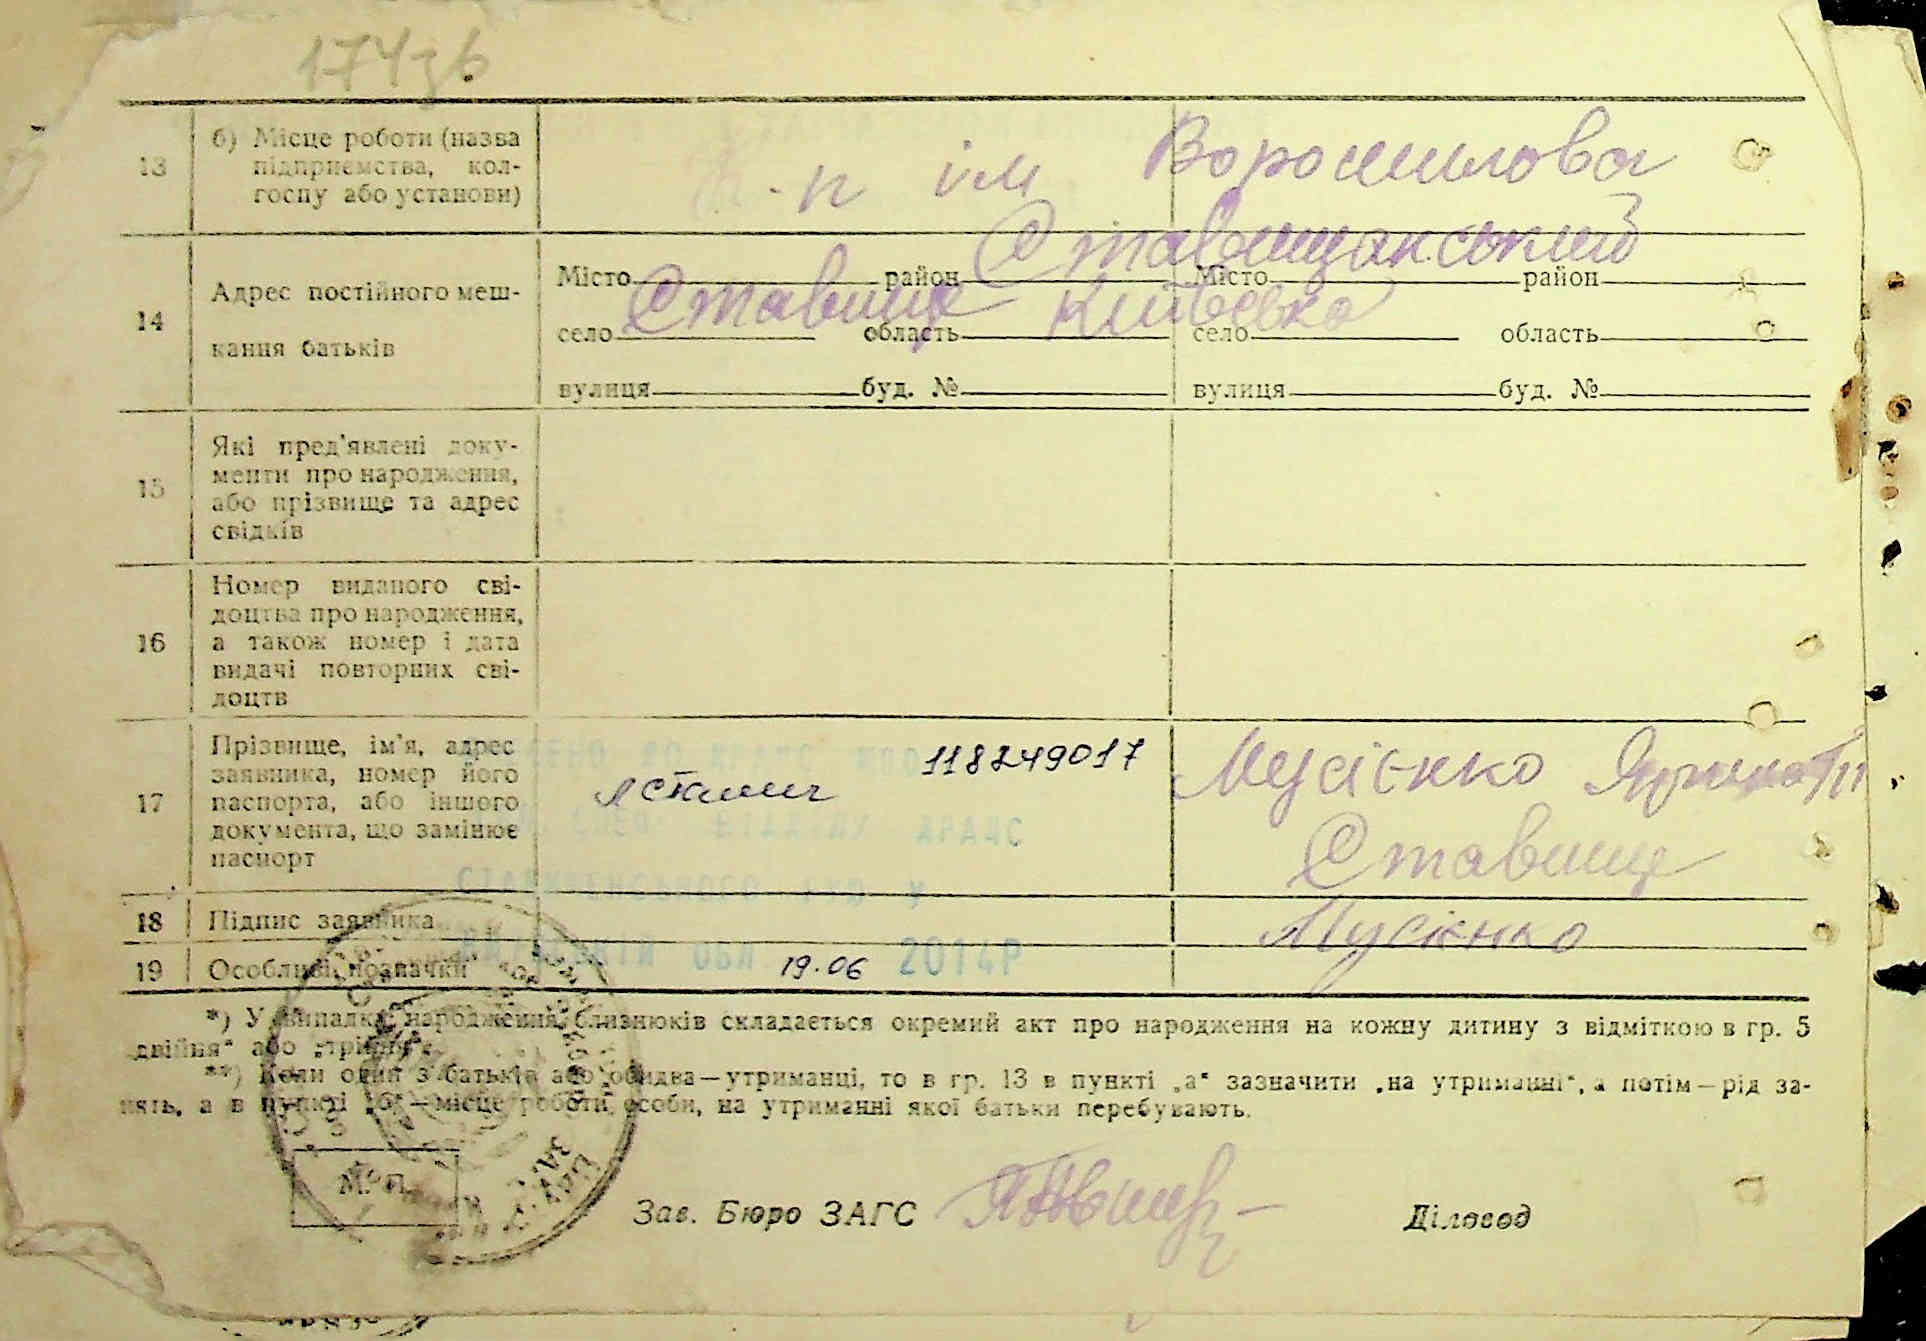 174зв
13 б) Місце роботи (назва
підприємства, кол-
госпу або установи)
к-п ім Ворошилова
14 Адрес постійного меш-
кання батьків
Ставищанський
Місто район Місто район
Ставище Київська
село область село область
вулиця буд. № вулиця буд. №
15 Які пред'явлені доку-
менти про народження,
або прізвище та адрес
свідків
16 Номер виданого сві-
доцтва про народження,
а також номер і дата
видачі повторних сві-
доцтв
17 Прізвище, ім'я, адрес
заявника, номер його
паспорта, або іншого
документа, що замінює
паспорт
118249017
Мусієнко
Ставище
ДРАЦС
18 Підпис заявника Мусієнко
19 Особливі позначки
ОБЛ 19.06 2014Р
*) У випадку народження близнюків складається окремий акт про народження на кожну дитину з відміткою в гр. 5
„двійня“ або „трійня“.
**) Коли один з батьків або обидва—утриманці, то в гр. 13 в пункті „а“ зазначити „на утриманні“, а потім—рід за-
нять, а в пункті „б“—місце роботи особи, на утриманні якої батьки перебувають.
М. П.
Зав. Бюро ЗАГС Діловод